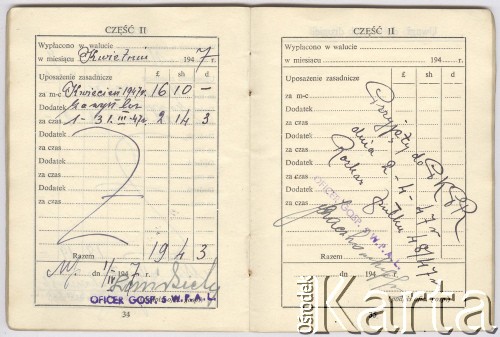 CZĘŚĆ II
Wypłacono w walucie
w miesiącu Kwietniu 1947 r.
Uposażenie zasadnicze £ sh d
za m-c Kwiecień 1947 r. 16 10 —
Dodatek za wysł. lat
za czas 1-31.III.47 r. 2 14 3
Dodatek
za czas
Dodatek
za czas
Dodatek
za czas
Dodatek
za czas
Razem 19 4 3
dn 1/IV 1947 r.
OFICER GOSP. 5 W.P.A.L.
34
CZĘŚĆ II
Wypłacono w walucie
w miesiącu 194 r.
Uposażenie zasadnicze £ sh d
za m-c
Dodatek
za czas
Dodatek
za czas
Dodatek
za czas
Dodatek
za czas
Dodatek
za czas
Razem
dn 194 r.
Przyjęty do PKPR
dnia 2-4-47 r
Rozkaz 48/47 r
OFICER GOSP. 5 W.P.A.L.
35
Ośrodek Karta